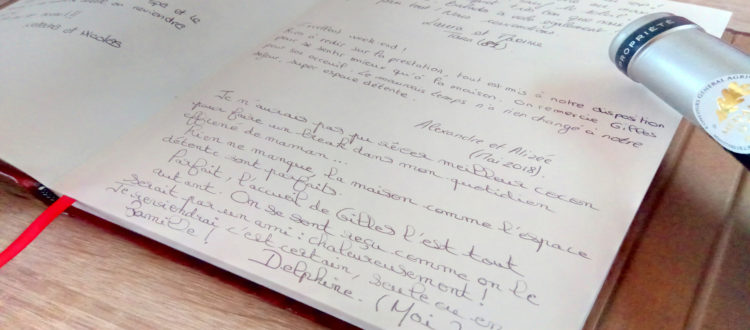 et le
on reviendra
et Nicolas
également
Laura et
Excellent week end !
Rien à redire sur la prestation, tout est mis à notre disposition
pour se sentir mieux qu'à la maison. On remercie Gilles
pour son accueil. Le mauvais temps n'a rien changé à notre
séjour, super espace détente.
Alexandre et Alizée
(Mai 2018).
Je n'aurais pas pu rêver meilleur cocon
pour faire un break dans mon quotidien
effréné de maman...
Rien ne manque, la maison comme l'espace
détente sont parfaits.
Parfait, l'accueil de Gilles l'est tout
autant. On se sent reçu comme on le
serait par un ami : chaleureusement !
Je reviendrai c'est certain, seule ou en
famille !
Delphine. (Mai
PROPRIÉTÉ
GÉNÉRAL